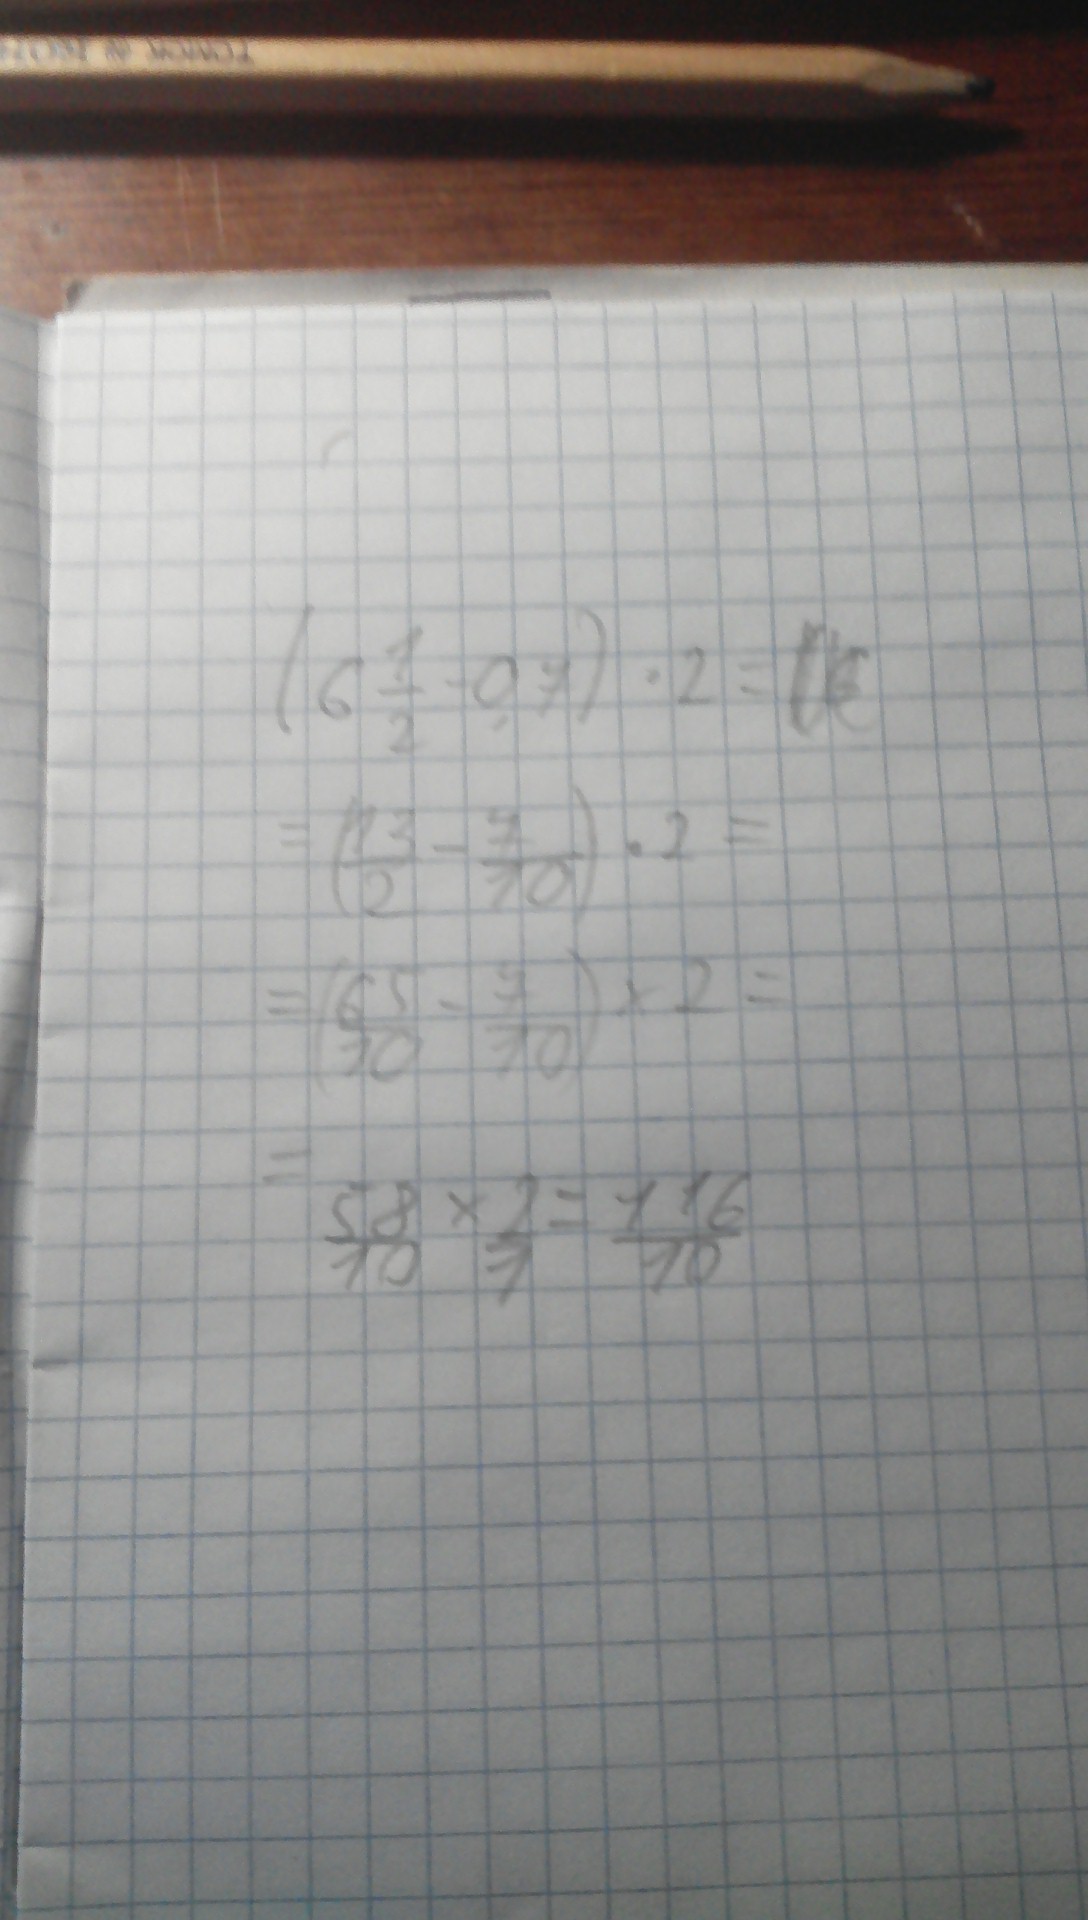 (6 1/2 - 0,7) · 2 =
= (13/2 - 7/10) · 2 =
= (65/10 - 7/10) × 2 =
= 58/10 × 2/1 = 116/10